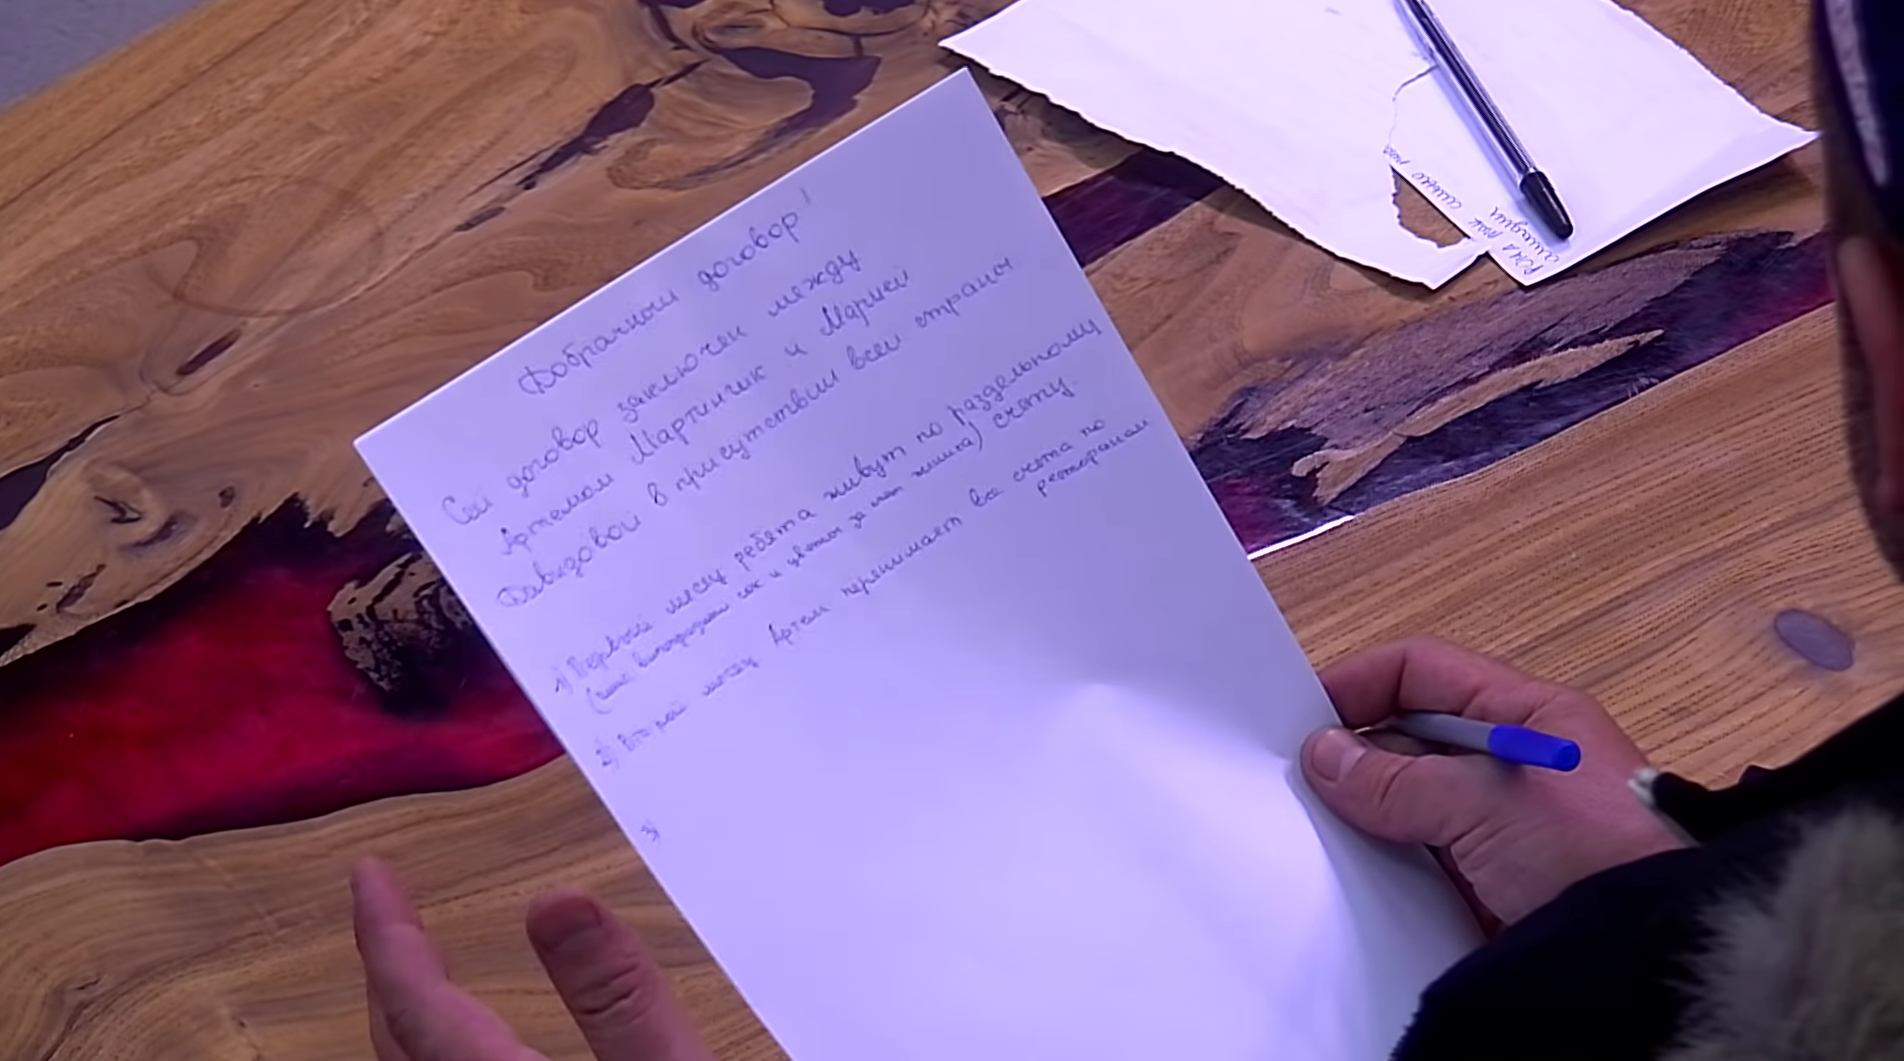 Добрачный договор!
Сей договор заключен между
Артемом Мартинчик и Марией
Давидовой в присутствии всей страны
1) Первый месяц ребята живут по раздельному
сок и цветы за жилья) счету.
2) Второй месяц Артем перенимает все счета по
ресторанам
3)